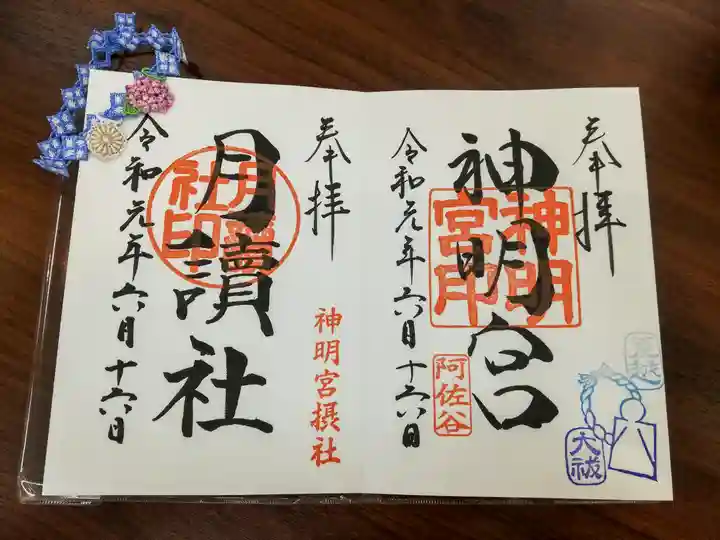 奉拝
神明宮
神明宮印
阿佐谷
令和元年六月十六日
大祓
奉拝
神明宮摂社
月讀社
月讀社印
令和元年六月十六日